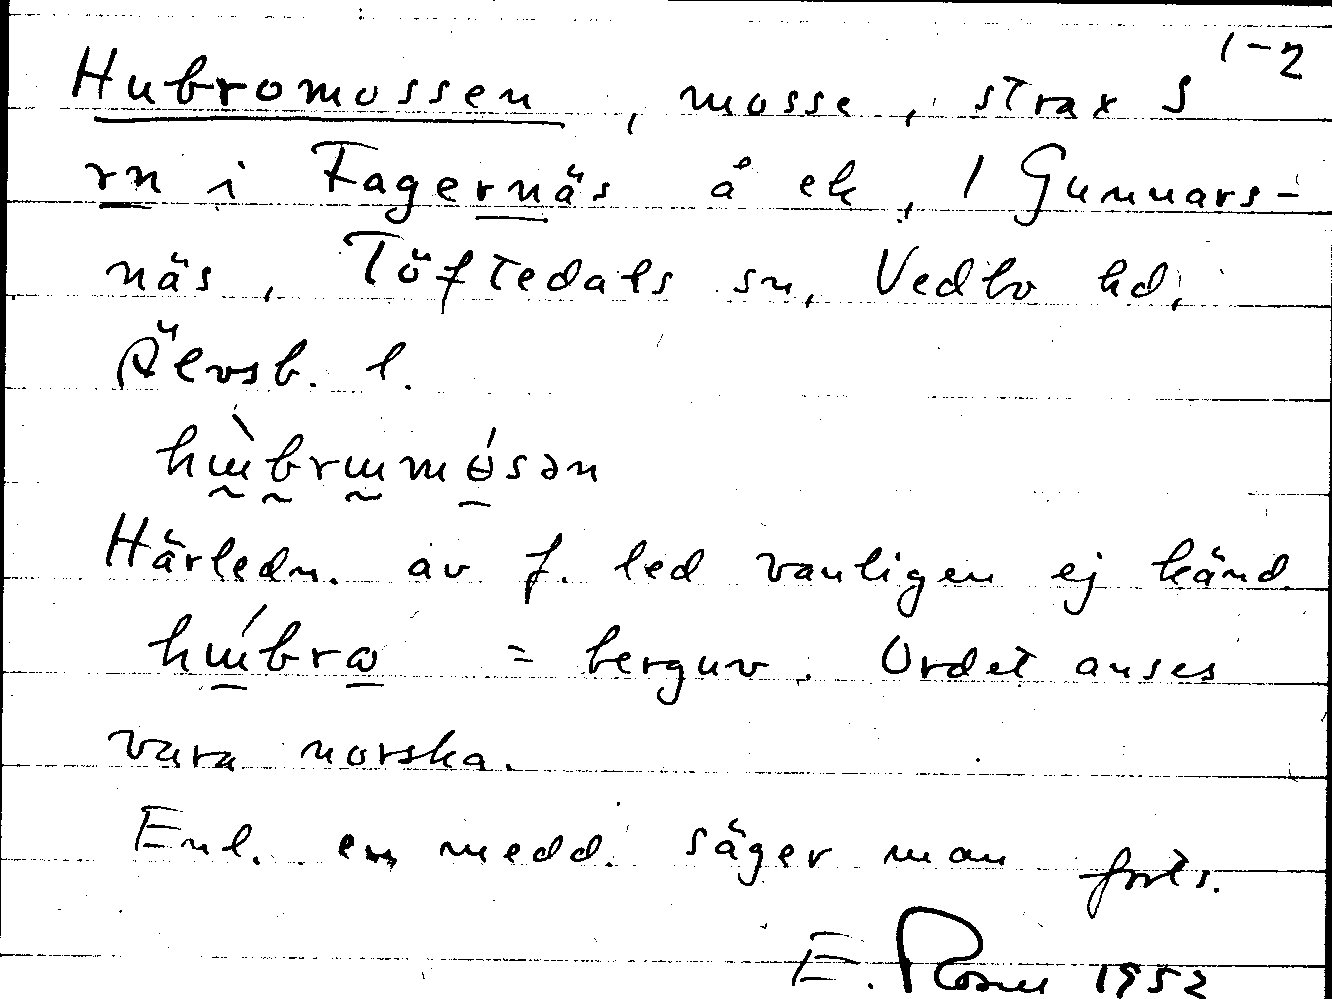 1-2
Hubromossen, mosse, strax S
rn i Fagernäs å ek, 1 Gunnars-
näs, Töftedals sn, Vedbo hd,
Älvsb. l.
hɯ̀brɯmɵ́sən
Härledn. av f. led vanligen ej känd.
hɯ́bra = berguv. Ordet anses
vara norska.
Enl. en medd. säger man forts.
E. Rosell 1952